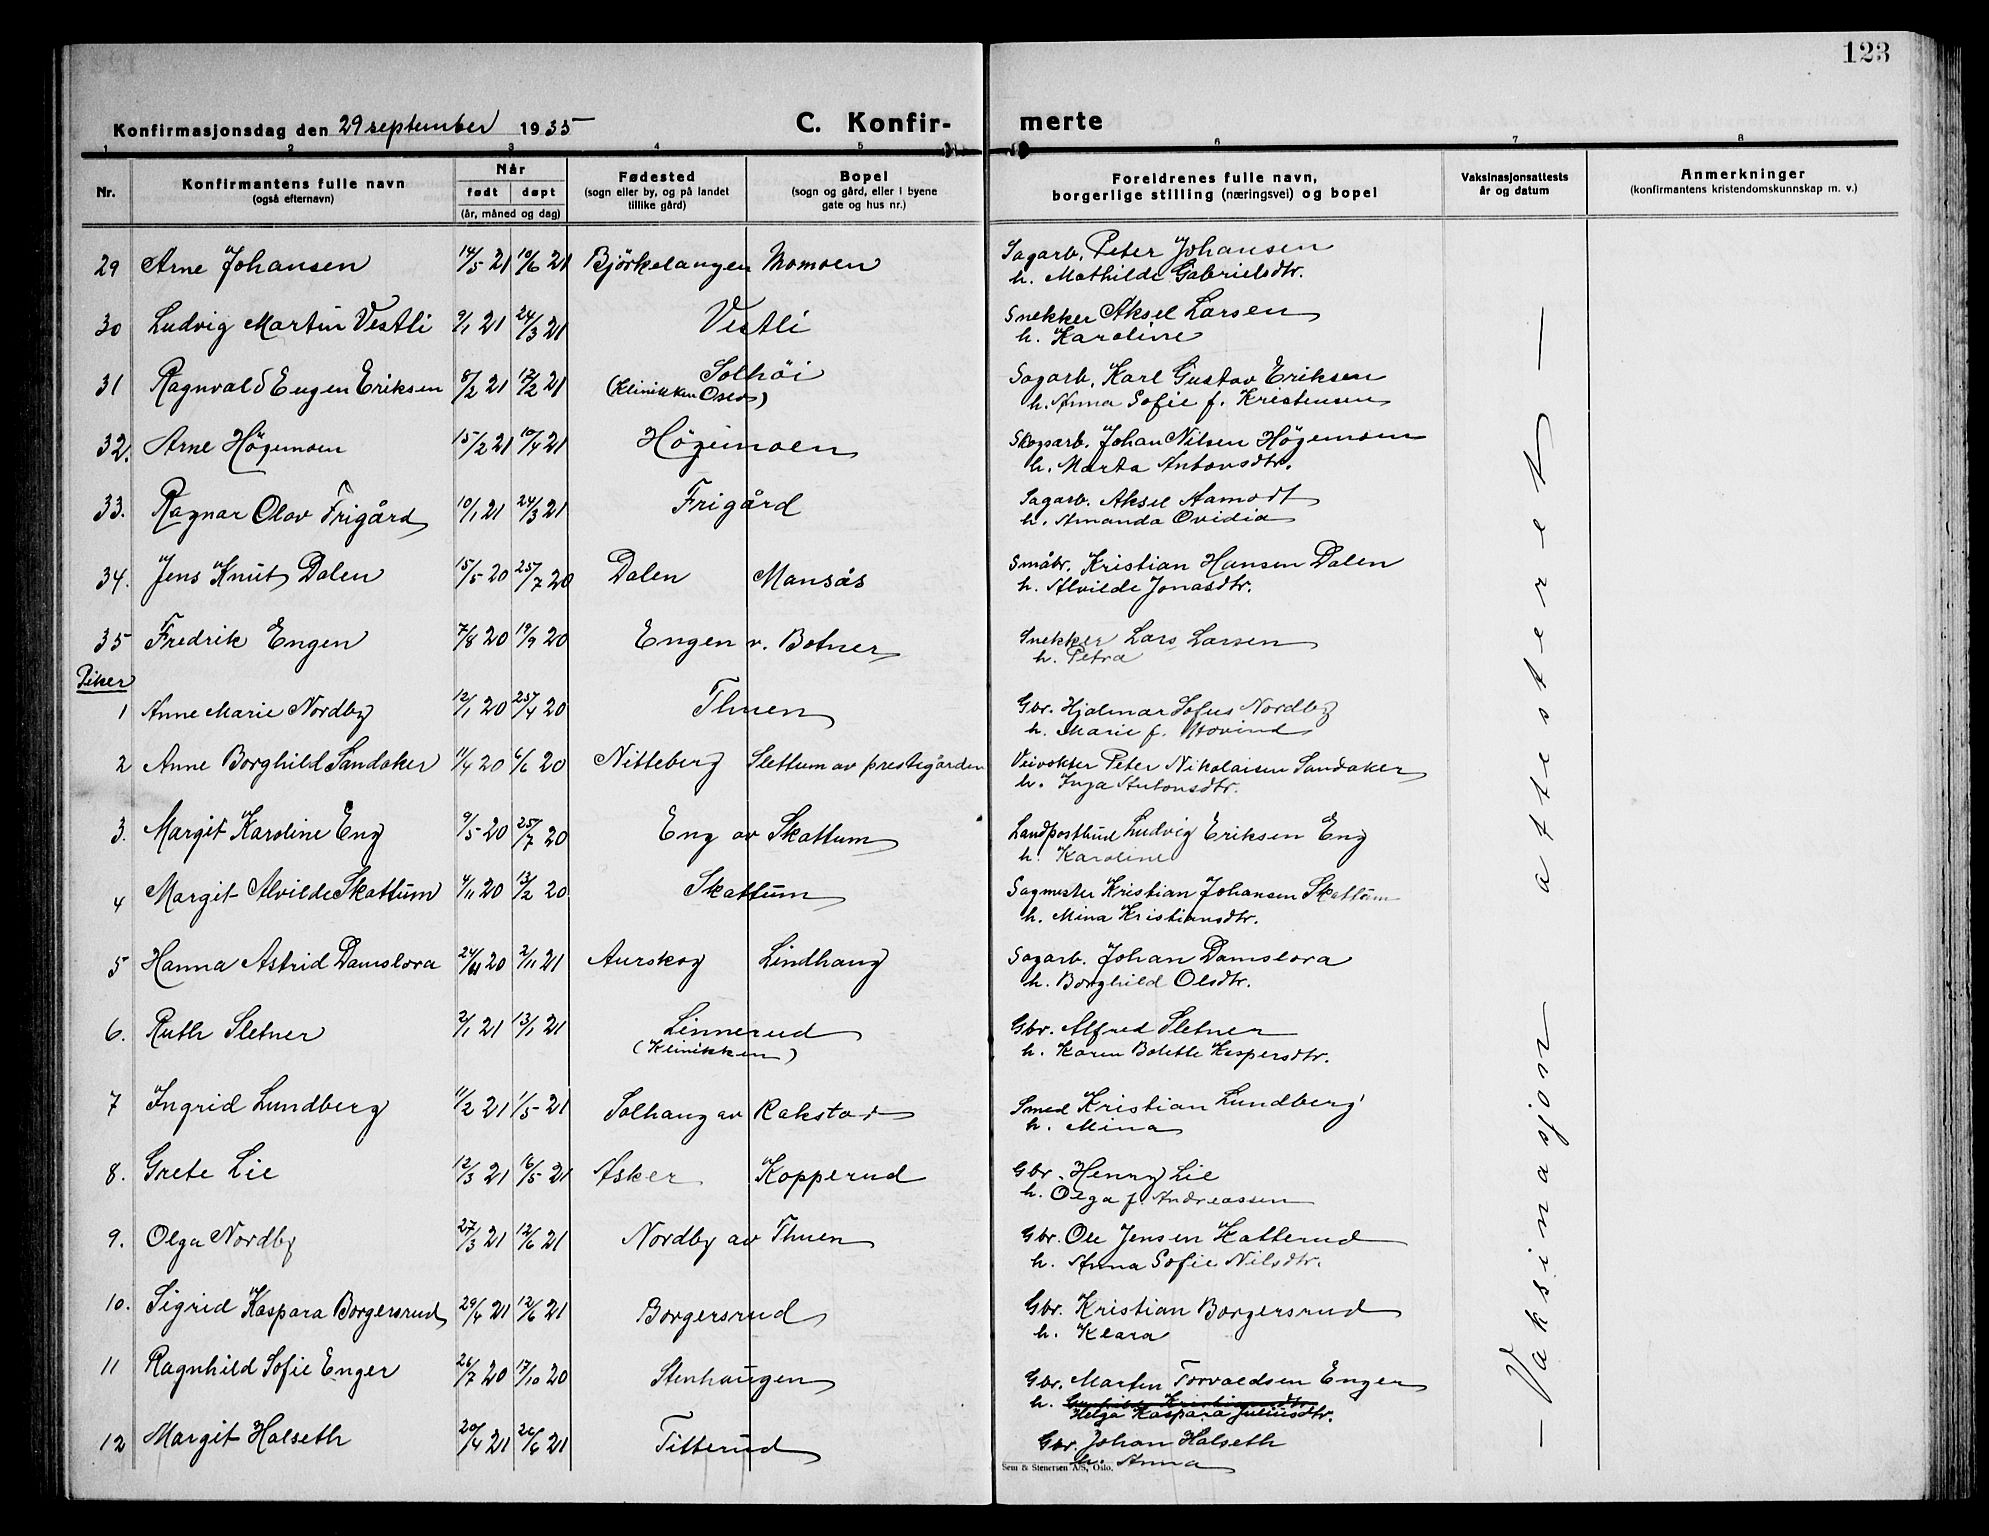 123
Konfirmasjonsdag den 29 september 1935 C. Konfir- merte
1 2 3 4 5 6 7 8
Nr. Konfirmantens fulle navn (også efternavn) Når født døpt (år, måned og dag) Fødested (sogn eller by, og på landet tillike gård) Bopel (sogn og gård, eller i byene gate og hus nr.) Foreldrenes fulle navn, borgerlige stilling (næringsvei) og bopel Vaksinasjonsattests år og datum Anmerkninger (konfirmantens kristendomskunnskap m. v.)
29 Arne Johansen 14/5 21 10/6 21 Björkelangen Momoen Sagarb. Peter Johansen
h. Mathilde Gabrielsdtr.
30 Ludvig Martin Vestli 9/1 21 24/3 21 Vestli Snekker Aksel Larsen
h. Karoline
31 Ragnvald Eugen Eriksen 8/2 21 17/2 21 Solhöi Sagarb. Karl Gustav Eriksen
(Klinikken Oslo) h. Anna Sofie f. Kristensen
32. Arne Högemoen 15/2 21 10/4 21 Högemoen Skogsarb. Johan Nilsen Högemoen
h. Marta Antonsdtr.
33. Ragnar Olav Frigård 10/1 21 24/3 21 Frigård Sagarb. Aksel Aamodt
h. Amanda Ovidia
34. Jens Knut Dalen 15/5 20 25/7 20 Dalen Mansås Småbr. Kristian Hansen Dalen
h. Alvilde Jonasdtr.
35 Fredrik Engen 7/8 20 19/9 20 Engen v. Botner Snekker Lars Larsen
h. Petra
Piker
1 Anne Marie Nordby 12/1 20 25/4 20 Thuen Gbr. Hjalmar Sofus Nordby
h. Marie f. Hovind
2 Anne Borghild Sandaker 11/4 20 6/6 20 Nitteberg Slettum av prestegården Veivokter Peter Nikolaisen Sandaker
h. Inga Antonsdtr.
3. Margit Karoline Eng 9/5 20 25/7 20 Eng av Skattum Landpostbud Ludvig Eriksen Eng
h. Karoline
4 Margit Alvilde Skattum 4/11 20 13/2 20 Skattum Sagmester Kristian Johansen Skattum
h. Mina Kristiansdtr.
5 Hanna Astrid Damslora 20 2/11 21 Aurskog Lindhaug Sagarb. Johan Damslora
h. Borghild Olsdtr.
6. Ruth Sletner 2/1 21 13/1 21 Linnerud Gbr. Alfred Sletner
(Klinikken) h. Karen Bolette Kaspersdtr.
7 Ingrid Lundberg 11/2 21 1/5 21 Solhaug av Rakstad Smed Kristian Lundberg
h. Mina
8. Grete Lie 12/3 21 16/5 21 Asker Kopperud Gbr. Henny Lie
h. Olga f. Andreassen
9. Olga Nordby 27/3 21 12/6 21 Nordby av Thuen Gbr. Ole Jensen Hatterud
h. Anna Sofie Nilsdtr.
10. Sigrid Kaspara Borgersrud 29/4 21 12/6 21 Borgersrud Gbr. Kristian Borgersrud
h. Klara
11 Ragnhild Sofie Enger 26/7 20 17/10 20 Stenhaugen Gbr. Martin Torvaldsen Enger
h. Kristiansdtr.
Helga Kaspara Juliusdtr.
12 Margit Halseth 20/4 21 26/6 21 Titterud Gbr. Johan Halseth
h. Anna
Sem & Stenersen A/S, Oslo.
— Vaksinasjon attestert —